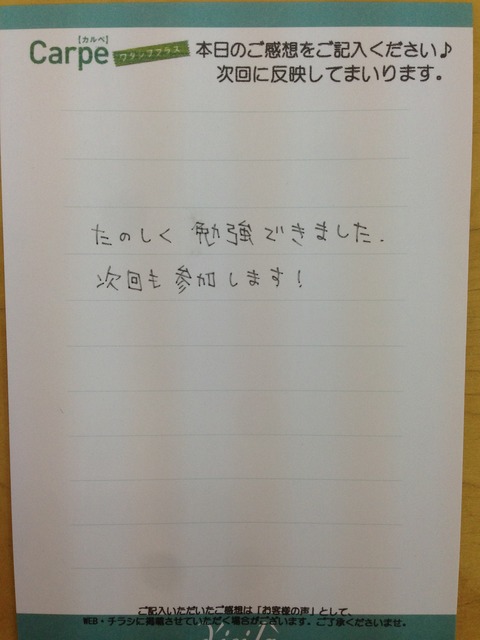 【カルペ】
Carpe
ワタシプラス
本日のご感想をご記入ください♪
次回に反映してまいります。
たのしく 勉強できました.
次回も参加します!
ご記入いただいたご感想は「お客様の声」として、
WEB・チラシに掲載させていただく場合がございます。ご了承くださいませ。